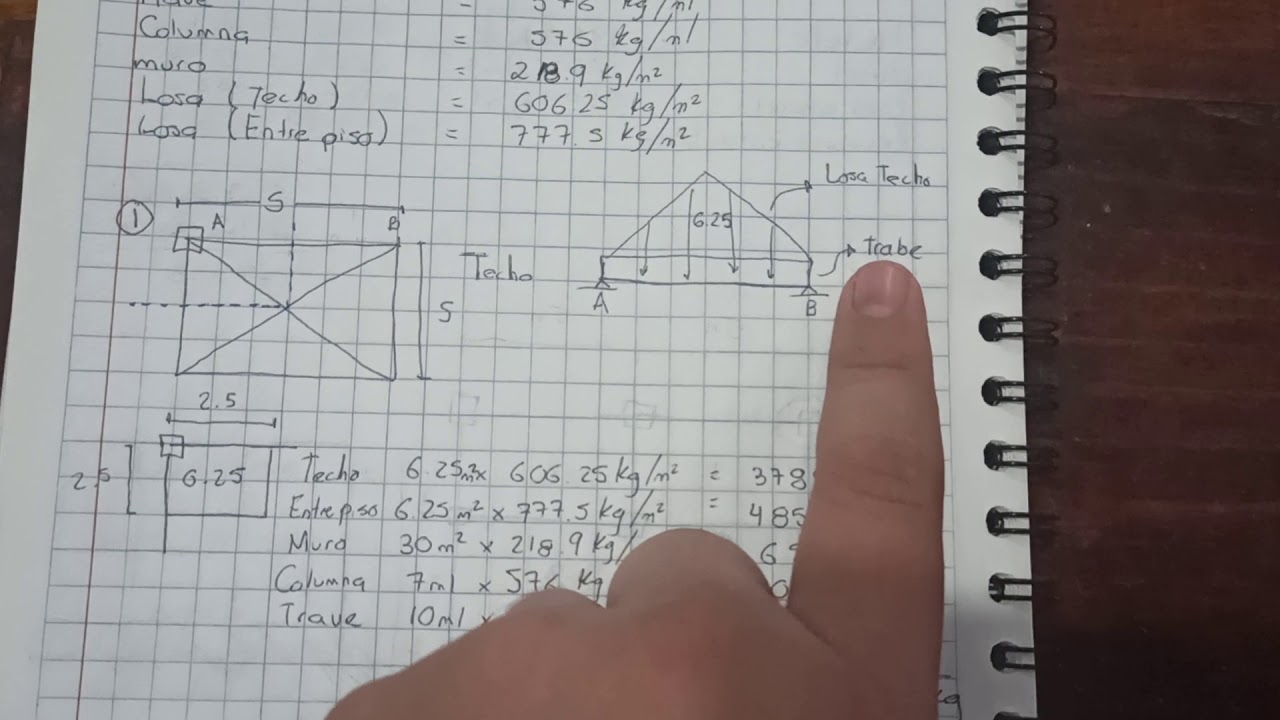 = 576 kg/ml
Columna = 576 kg/ml
muro = 218.9 kg/m²
Losa (Techo) = 606.25 kg/m²
Losa (Entrepiso) = 777.5 kg/m²
1 5
A B
Techo 5
6.25
Losa Techo
trabe
A B
2.5
2.5 6.25
Techo 6.25m² x 606.25 kg/m² = 378
Entrepiso 6.25 m² x 777.5 kg/m² = 485
Muro 30m² x 218.9 kg/ 6
Columna 7ml x 576 kg 0
Trave 10ml x